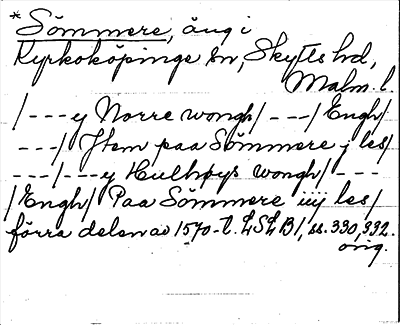 * Sömmere, äng i
Kyrkoköpinge sn, Skytts hd,
Malm. l.
/---y Norre wongh/---/Engh/
---/Jtem paa Sömmere j les/
---/---y Hulhøys wongh/---
/Engh/ Paa Sömmere iiij les/
förra delen av 1570-t. LSLB 1, ss. 330, 332.
orig.